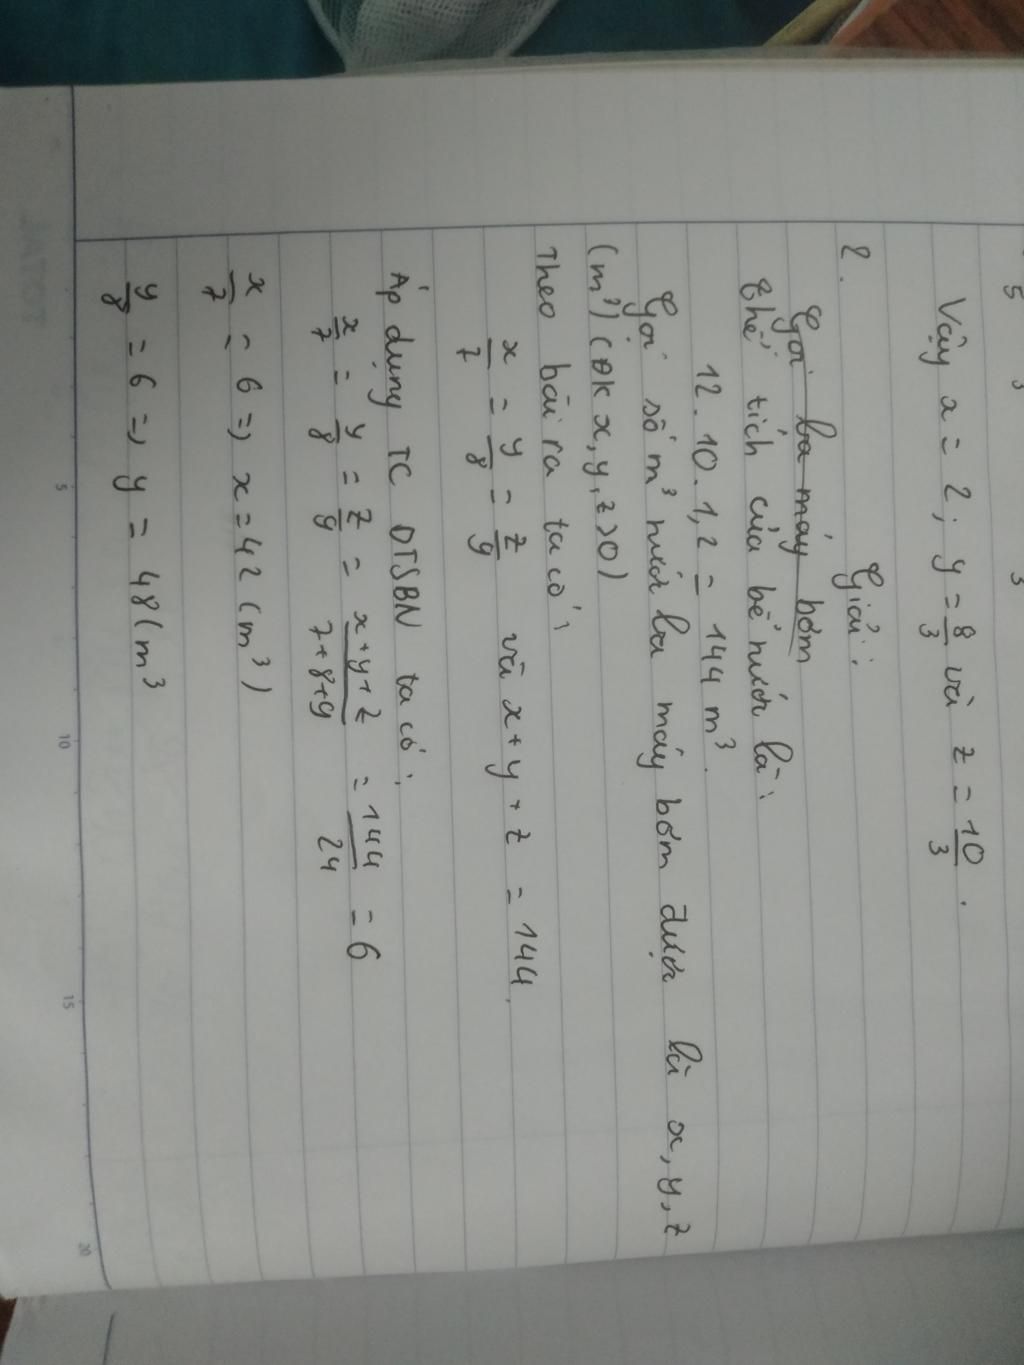 5 3 3
Vậy x = 2; y = 8/3 và z = 10/3.
8. Giải:
Gọi ba máy bơm
Thể tích của bể nước là:
12. 10. 1,2 = 144 m³.
Gọi số m³ nước ba máy bơm được là x, y, z
(m³) (ĐK x, y, z > 0)
Theo bài ra ta có:
x/7 = y/8 = z/9 và x + y + z = 144.
Áp dụng TC DTSBN ta có:
x/7 = y/8 = z/9 = x+y+z/7+8+9 = 144/24 = 6
x/7 = 6 => x = 42 (m³)
y/8 = 6 => y = 48 (m³
5 10 15 20